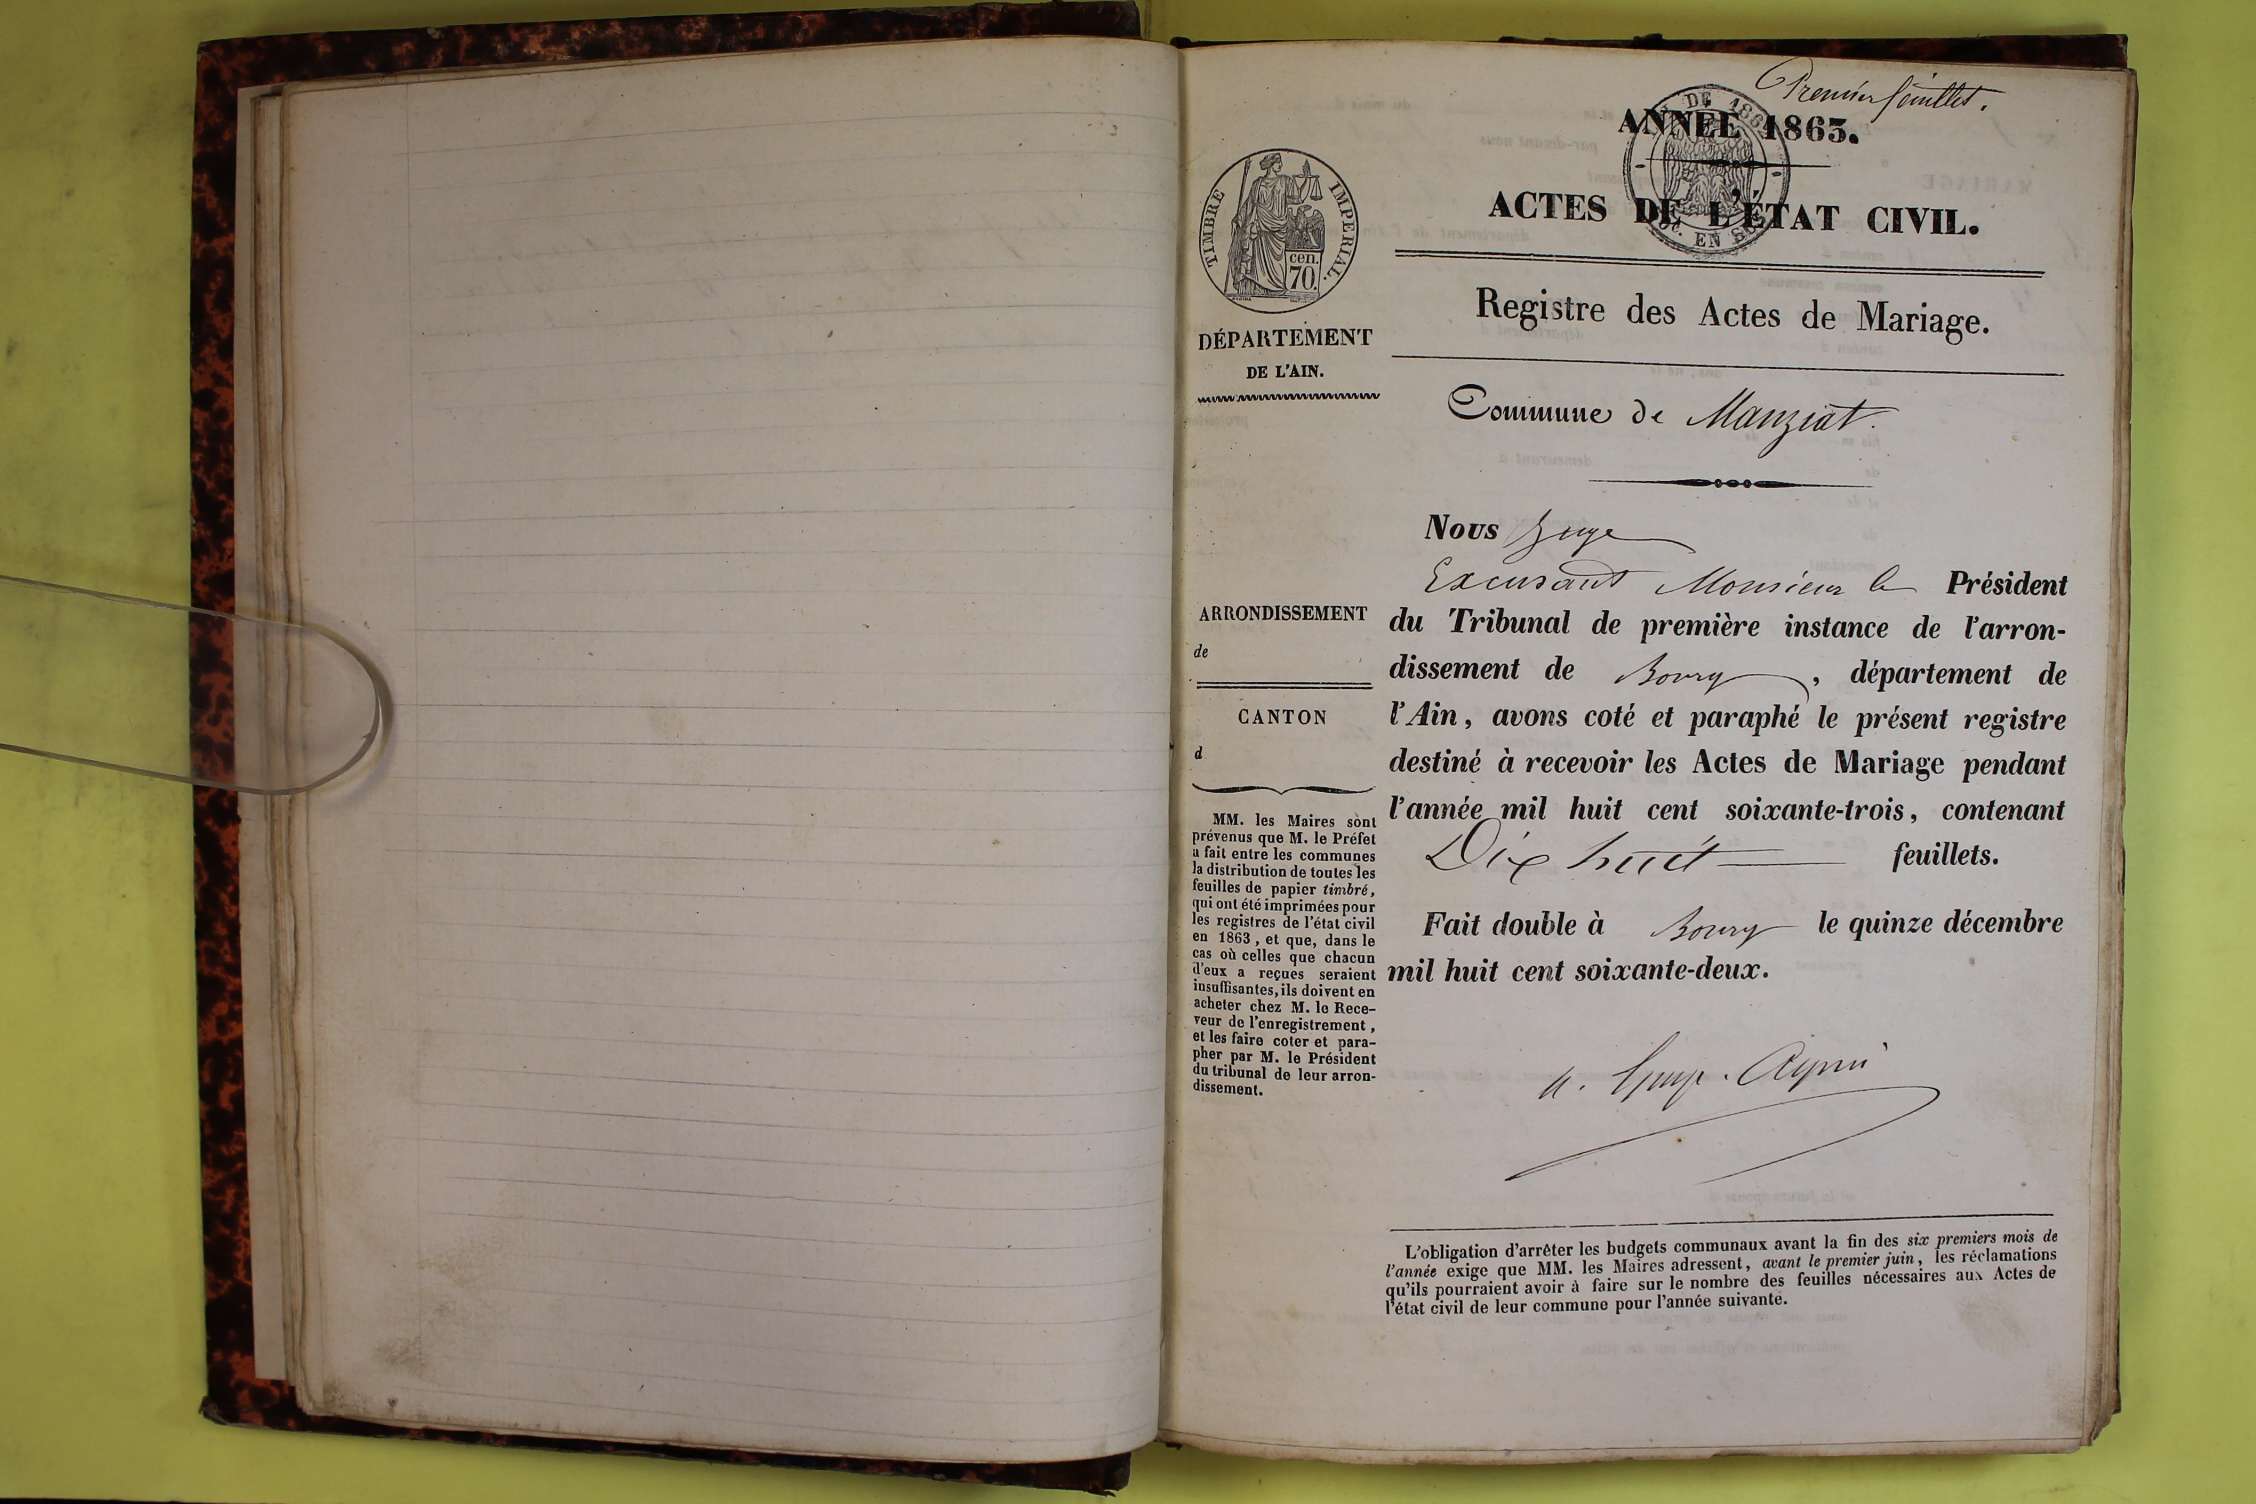 Premier feuillet.
ANNÉE 1863.
ACTES DE L'ÉTAT CIVIL.
Registre des Actes de Mariage.
Commune de Manziat.
TIMBRE IMPERIAL.
cen.
70.
DÉPARTEMENT
DE L'AIN.
ARRONDISSEMENT
de
CANTON
d
MM. les Maires sont
prévenus que M. le Préfet
a fait entre les communes
la distribution de toutes les
feuilles de papier timbré,
qui ont été imprimées pour
les registres de l'état civil
en 1863, et que, dans le
cas où celles que chacun
d'eux a reçues seraient
insuffisantes, ils doivent en
acheter chez M. le Rece-
veur de l'enregistrement,
et les faire coter et para-
pher par M. le Président
du tribunal de leur arron-
dissement.
Nous Juge
Excusant Monsieur le Président
du Tribunal de première instance de l'arron-
dissement de Bourg, département de
l'Ain, avons coté et paraphé le présent registre
destiné à recevoir les Actes de Mariage pendant
l'année mil huit cent soixante-trois, contenant
Dix huit feuillets.
Fait double à Bourg le quinze décembre
mil huit cent soixante-deux.
L'obligation d'arrêter les budgets communaux avant la fin des six premiers mois de
l'année exige que MM. les Maires adressent, avant le premier juin, les réclamations
qu'ils pourraient avoir à faire sur le nombre des feuilles nécessaires aux Actes de
l'état civil de leur commune pour l'année suivante.